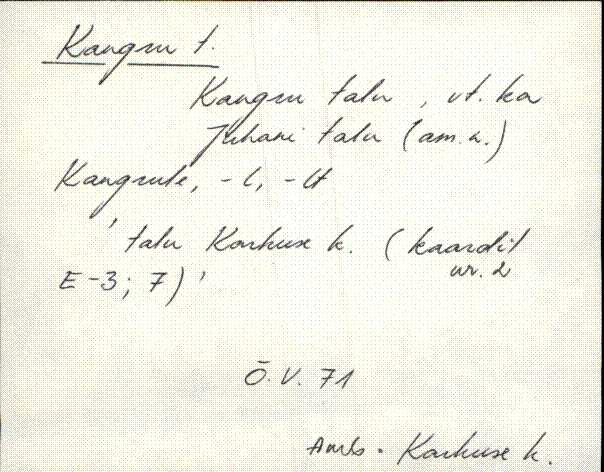 Kangru t.
Kangru talu, vt. ka
Juhani talu (am. n.)
Kangrule, -l, -lt
'talu Karkuse k. (kaardil
nr. 2
E-3; 7)'
Õ. V. 71
Amb. Karkuse k.